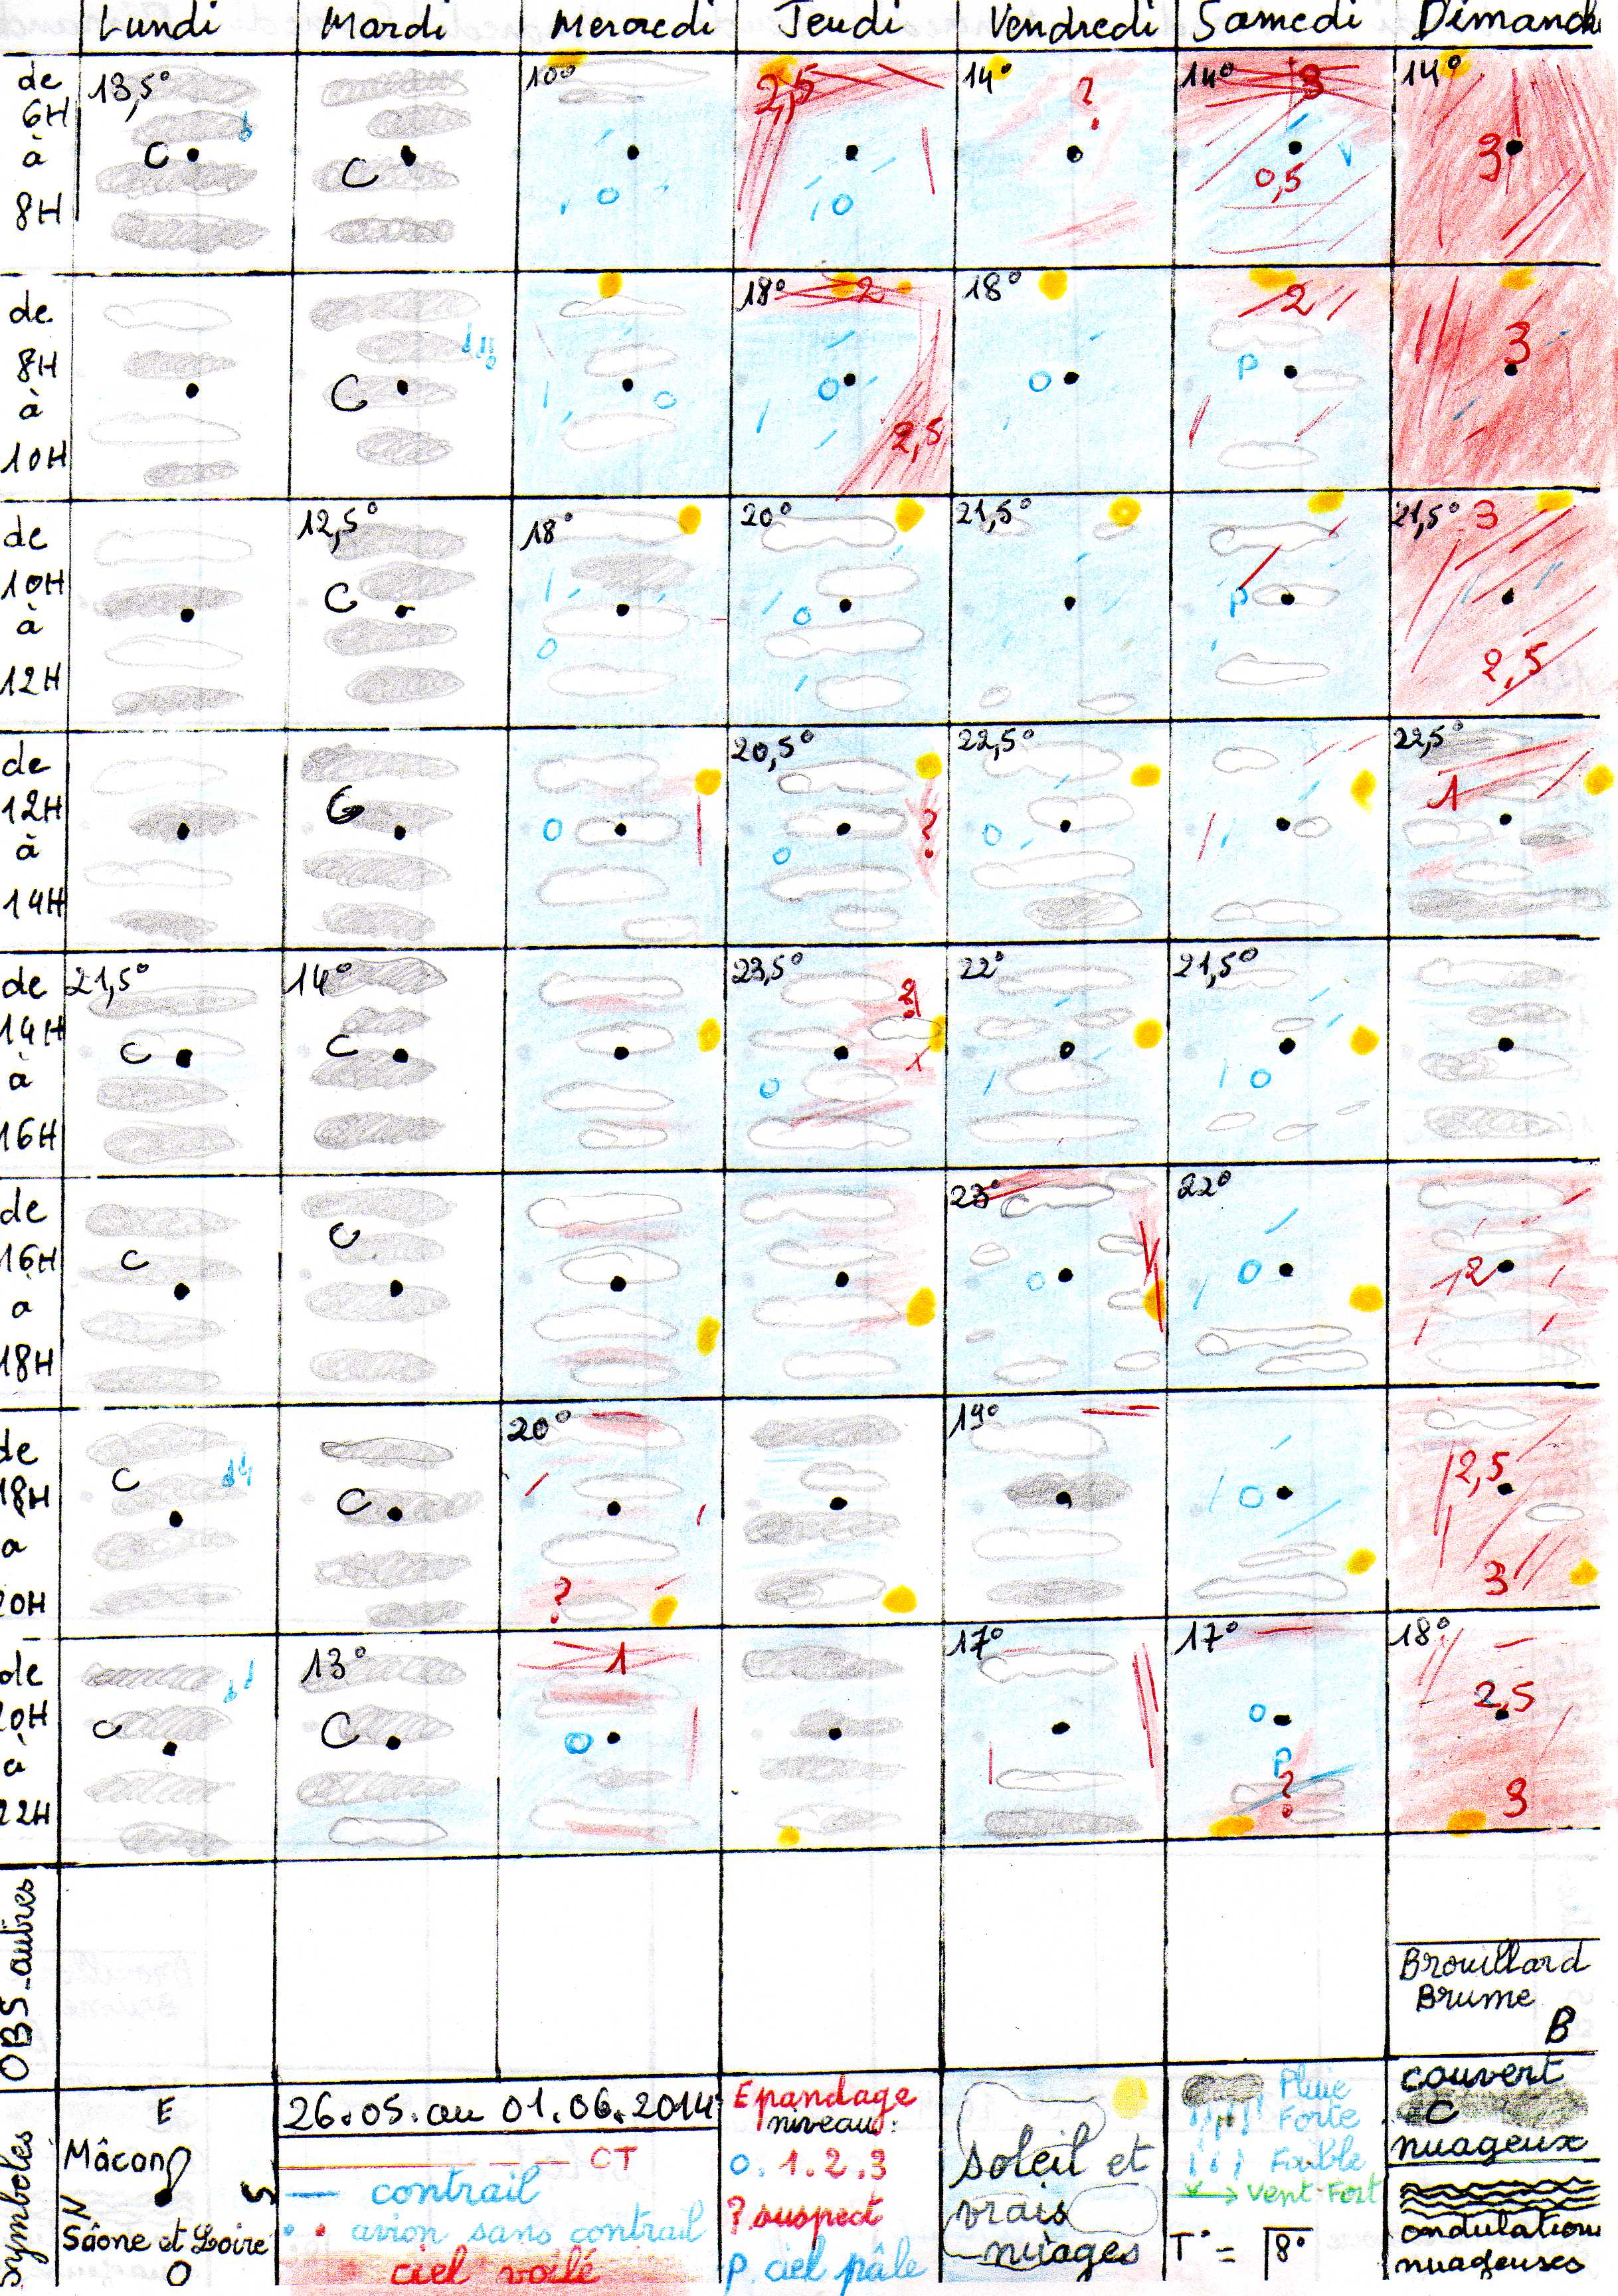 Lundi Mardi Mercredi Jeudi Vendredi Samedi Dimanch
de 6H à 8H
13,5° C
C
10° o
2,5 o
14° ?
14° 3 0,5
14° 3
de 8H à 10H
C
o
18° 2 o 2,5
18° o
2 P
3
de 10H à 12H
12,5° C
18° o
20° o
21,5°
P
21,5° 3 2,5
de 12H à 14H
C
o
20,5° ? o
22,5° o
22,5° 1
de 14H à 16H
21,5° C
14° C
23,5° ? o
22°
21,5° o
de 16H à 18H
C
C
23° o
22° o
12
de 18H a 20H
C
C
20° ?
19°
o
2,5 3
de 20H à 22H
C
13° C
1 o
17°
17° o P ?
18° 2,5 3
OBS-autres
Brouillard
Brume
B
Symboles
E
Mâcon
N S
Saône et Loire
O
26.05.au 01.06.2014
CT
contrail
avion sans contrail
ciel voilé
Epandage
niveau:
0.1.2.3
? suspect
P. ciel pâle
soleil et
vrais
nuages
Pluie
Forte
Faible
Vent Fort
T° = 8°
couvert
C
nuageux
ondulations
nuageuses